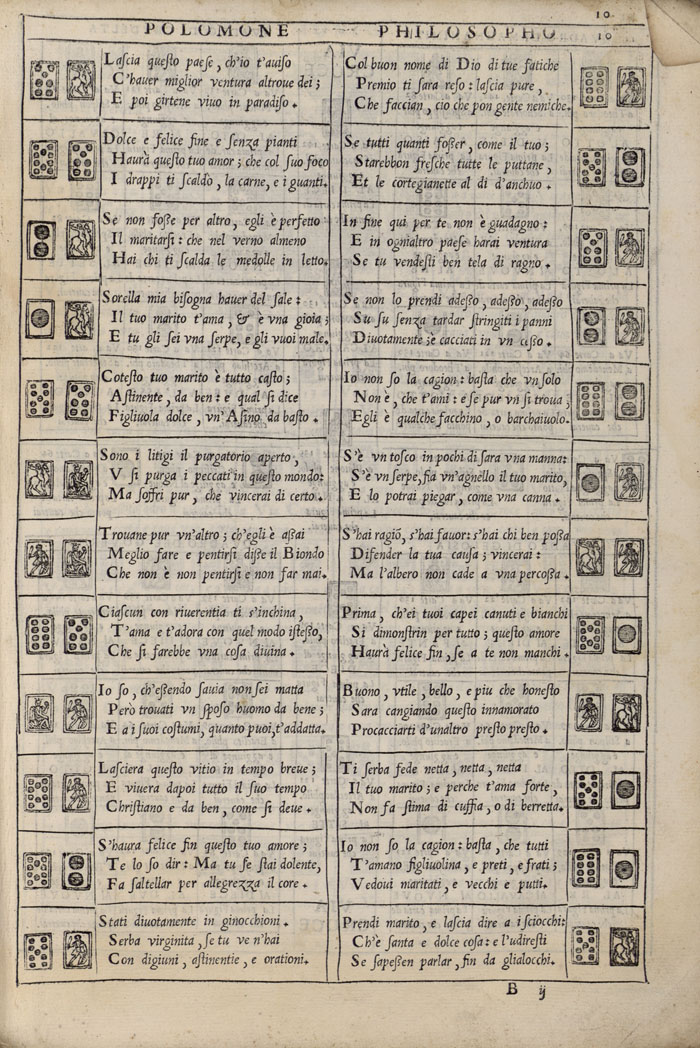 10
POLOMONE PHILOSOPHO 10
Lascia questo paese, ch'io t'auiso
C'hauer miglior ventura altroue dei;
E poi girtene viuo in paradiso.
Dolce e felice fine e senza pianti
Haurà questo tuo amor; che col suo foco
I drappi ti scaldò, la carne, e i guanti.
Se non fosse per altro, egli è perfetto
Il maritarsi: che nel verno almeno
Hai chi ti scalda le medolle in letto.
Sorella mia bisogna hauer del sale:
Il tuo marito t'ama, & è vna gioia;
E tu gli sei vna serpe, e gli vuoi male.
Cotesto tuo marito è tutto casto;
Astinente, da ben: e qual si dice
Figliuola dolce, vn'Asino da basto.
Sono i litigi il purgatorio aperto,
V si purga i peccati in questo mondo:
Ma soffri pur, che vincerai di certo.
Trouane pur vn'altro; ch'egli è assai
Meglio fare e pentirsi disse il Biondo
Che non è non pentirsi e non far mai.
Ciascun con riuerentia ti s'inchina,
T'ama e t'adora con quel modo istesso,
Che si farebbe vna cosa diuina.
Io so, ch'essendo sauia non sei matta
Però trouati vn sposo huomo da bene;
E a i suoi costumi, quanto puoi, t'addatta.
Lasciera questo vitio in tempo breue;
E viuera dapoi tutto il suo tempo
Christiano e da ben, come si deue.
S'haura felice fin questo tuo amore;
Te lo so dir: Ma tu se stai dolente,
Fa saltellar per allegrezza il core.
Stati diuotamente in ginocchioni.
Serba virginita, se tu ve n'hai
Con digiuni, astinentie, e orationi.
Col buon nome di Dio di tue fatiche
Premio ti sara reso: lascia pure,
Che faccian, cio che pon gente nemiche.
Se tutti quanti fosser, come il tuo;
Starebbon fresche tutte le puttane,
Et le cortegianette al di d'anchuo.
In fine qui per te non è guadagno:
E in ognialtro paese harai ventura
Se tu vendesti ben tela di ragno.
Se non lo prendi adesso, adesso, adesso
Su su senza tardar stringiti i panni
Diuotamente; e cacciati in vn cesso.
Io non so la cagion: basta che vn solo
Non è, che t'ami: e se pur vn si troua;
Egli è qualche facchino, o barchaiuolo.
S'è vn tosco in pochi di sara vna manna:
S'è vn serpe, fia vn'agnello il tuo marito,
E lo potrai piegar, come vna canna.
S'hai ragiõ, s'hai fauor: s'hai chi ben possa
Difender la tua causa; vincerai:
Ma l'albero non cade a vna percossa.
Prima, ch'ei tuoi capei canuti e bianchi
Si dimonstrin per tutto; questo amore
Haurà felice fin, se a te non manchi.
Buono, vtile, bello, e piu che honesto
Sara cangiando questo innamorato
Procacciarti d'unaltro presto presto.
Ti serba fede netta, netta, netta
Il tuo marito; e perche t'ama forte,
Non fa stima di cuffia, o di berretta.
Io non so la cagion: basta, che tutti
T'amano figliuolina, e preti, e frati;
Vedoui maritati, e vecchi e putti.
Prendi marito, e lascia dire a i sciocchi:
Ch'è santa e dolce cosa: e l'udiresti
Se sapessen parlar, fin da glialocchi.
B ij